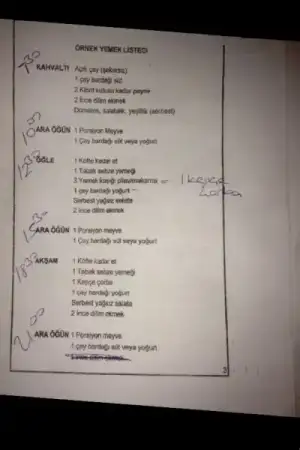 ÖRNEK YEMEK LİSTESİ
730
KAHVALTI Açık çay (şekersiz)
1 çay bardağı süt
2 Kibrit kutusu kadar peynir
2 İnce dilim ekmek
Domates, salatalık, yeşillik (serbest)
1000
ARA ÖĞÜN 1 Porsiyon Meyve
1 Çay bardağı süt veya yoğurt
ÖĞLE 1 Köfte kadar et
1 Tabak sebze yemeği
3 Yemek kaşığı pilav/makarna — 1 kepçe
çorba
1 çay bardağı yoğurt
Serbest yağsız salata
2 ince dilim ekmek
ARA ÖĞÜN 1 Porsiyon meyve
1 Çay bardağı süt veya yoğurt
1830
AKŞAM 1 Köfte kadar et
1 Tabak sebze yemeği
1 Kepçe çorba
1 çay bardağı yoğurt
Serbest yağsız salata
2 ince dilim ekmek
2100
ARA ÖĞÜN 1 Porsiyon meyve
1 çay bardağı süt veya yoğurt